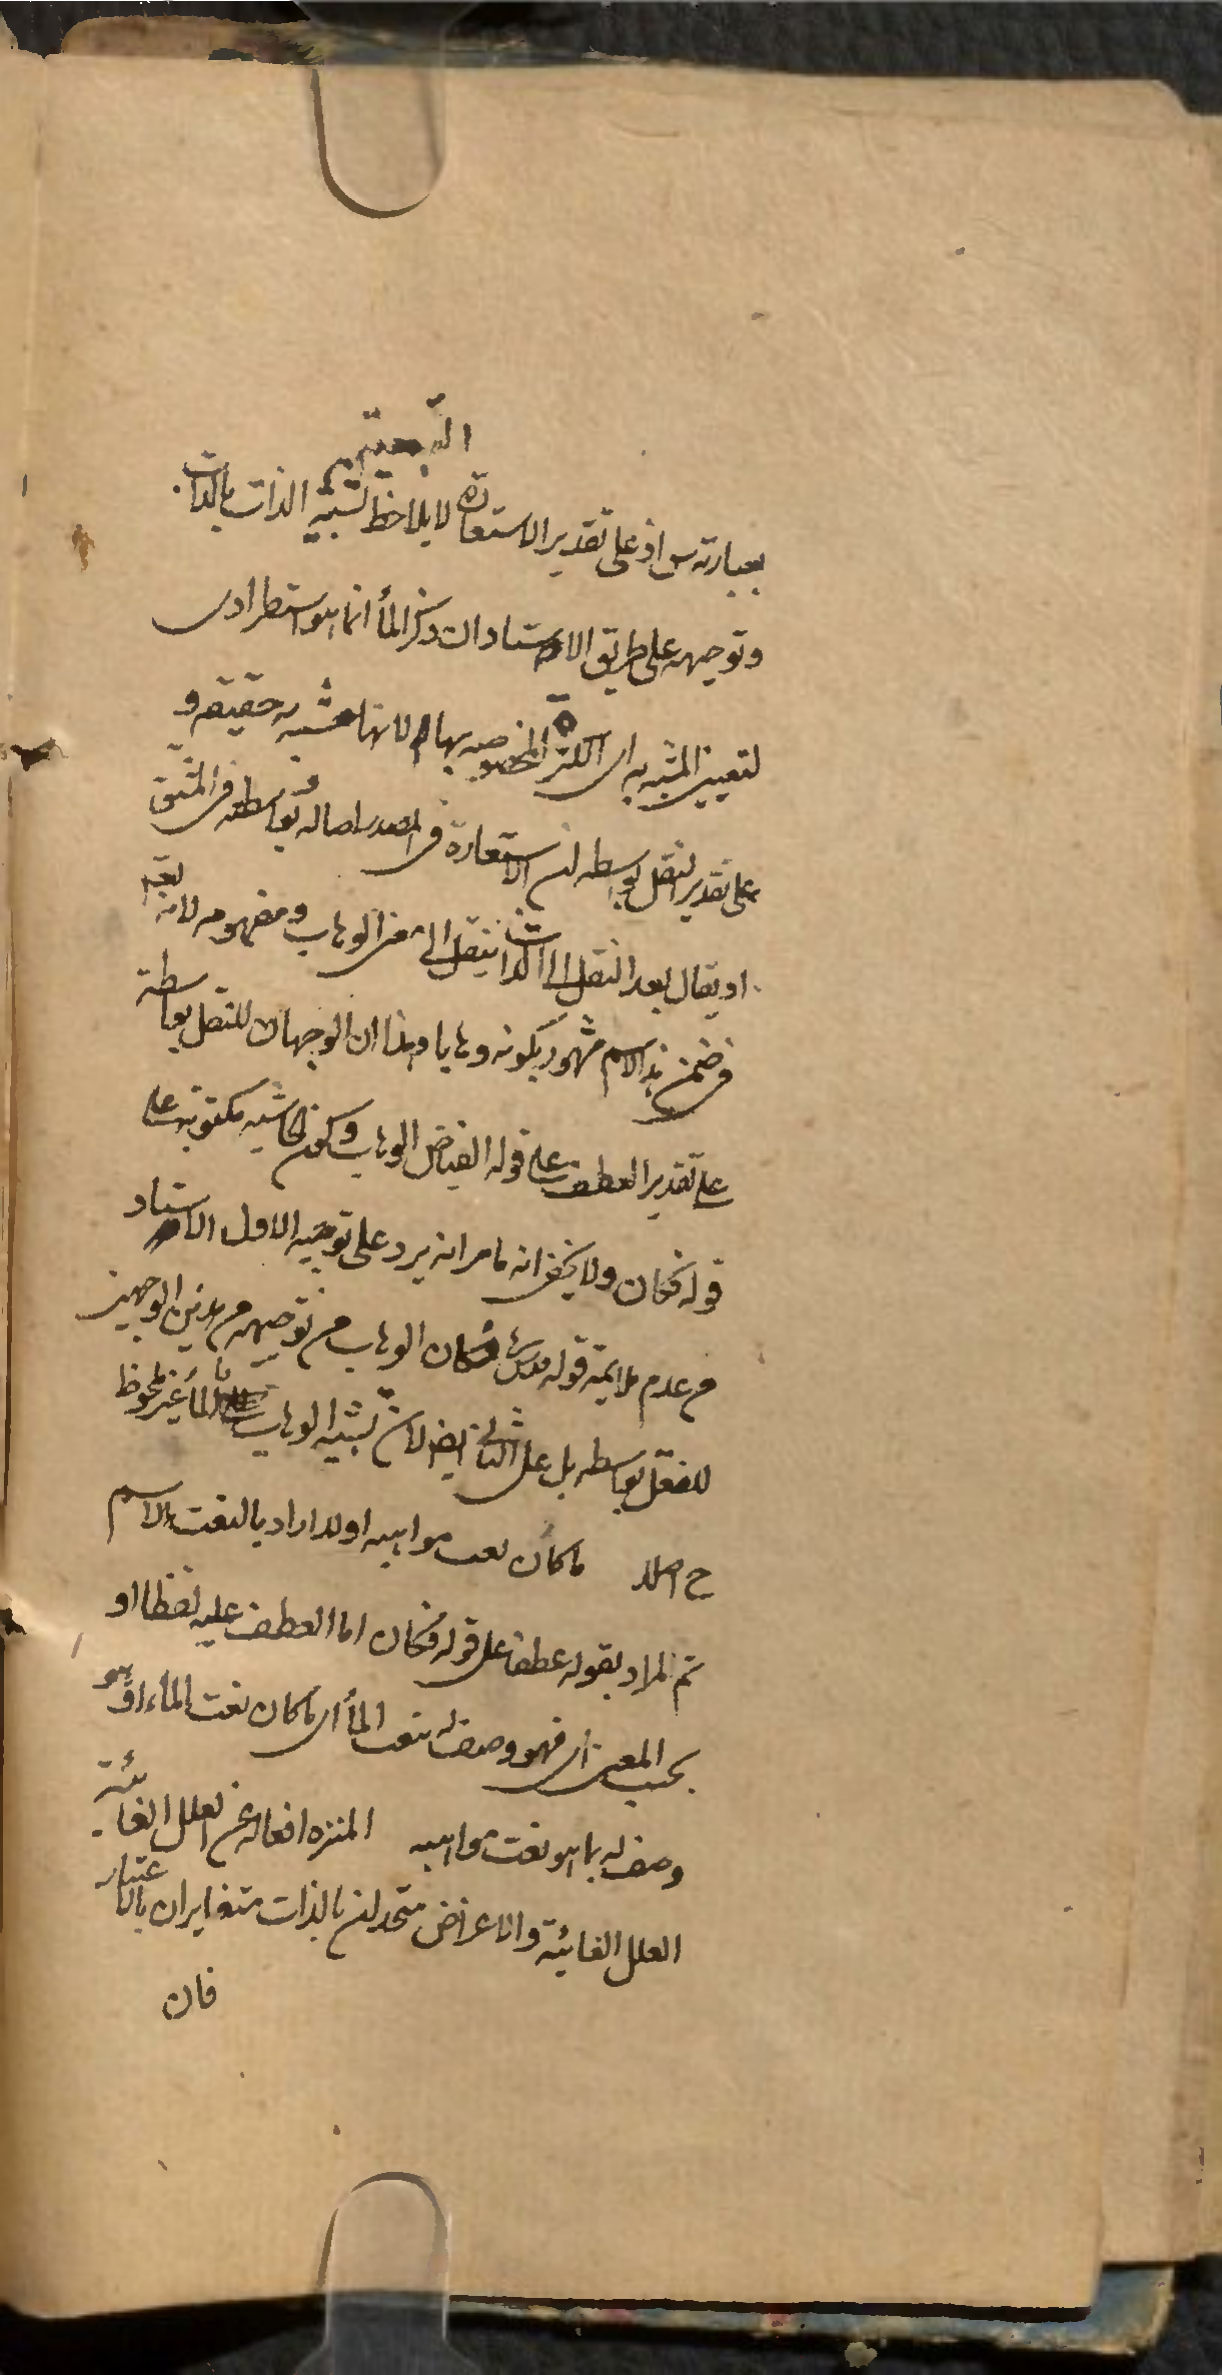 التبعية
بعبارته س اذ على تقدير الاستعارة لا يلاحظ تشبيه الذات بالذات
وتوجيهه على طريق الاستاد ان ذكر الماء انما هو استطرادى
لتعيين المشبه به اى الكثرة المخصوصه بها لانها مشبه به حقيقة و
على تقدير النقل بواسطه لان الاستعارة فى المصدر اصاله بواسطته فى المشتق
او يقال بعد النقل الى الذات ينتقل الى من الوهاب ومفهومه لانه
فى ضمن هذا الاسم مشهور بكونه وهابا وهذا ان الوجهان للنقل بواسطة
على تقدير العطف على قوله الفياض الوهاب وكون الحاشيه مكتوبة على
قوله فكان ولا يخفى انه مامر انه يرد على توجيه الاول الاستاد
من عدم ملايمة قوله فكان الوهاب من توجيهه من هذين الوجهين
للنقل بواسطه بل على الثانى ايضا لان تشبيه الوهاب بالماء غير ملحوظ
ح اصلا ما كان نعت مواهبه اولا اراد بالنعت الاسم
ثم المراد بقوله عطف على قوله فكان اما العطف عليه لفظا او
بحسب المعنى اى فهو وصف له بنعت الماء اى ما كان نعت الماء او هو
وصف له بما هو نعت مواهبه المنزه افعاله عن العلل الغائية
العلل الغائية والاعراض متحدان بالذات متغايران بالاعتبار
فان